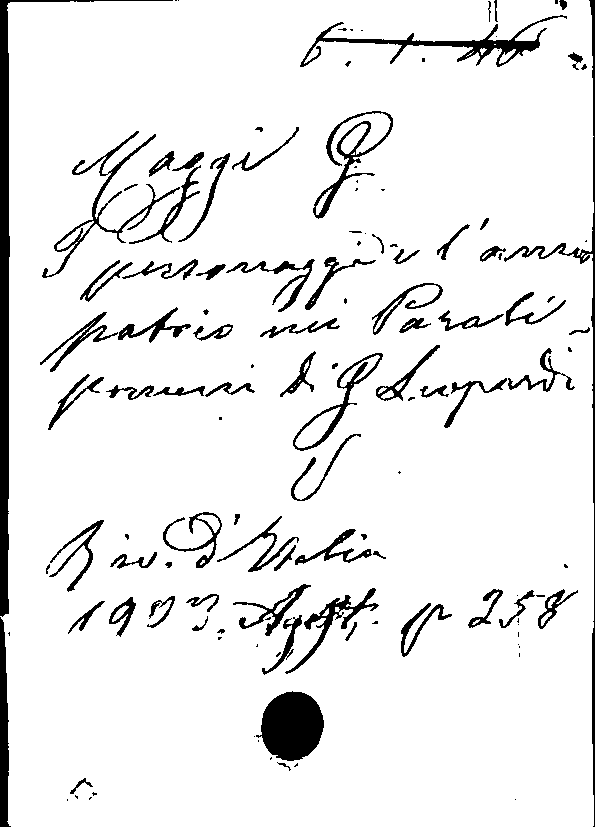 6.1.46
Maggi G
I personaggi e l'amor
patrio nei Parali-
pomeni di G Leopardi
Riv. d'Italia
1903. Agost. p 258